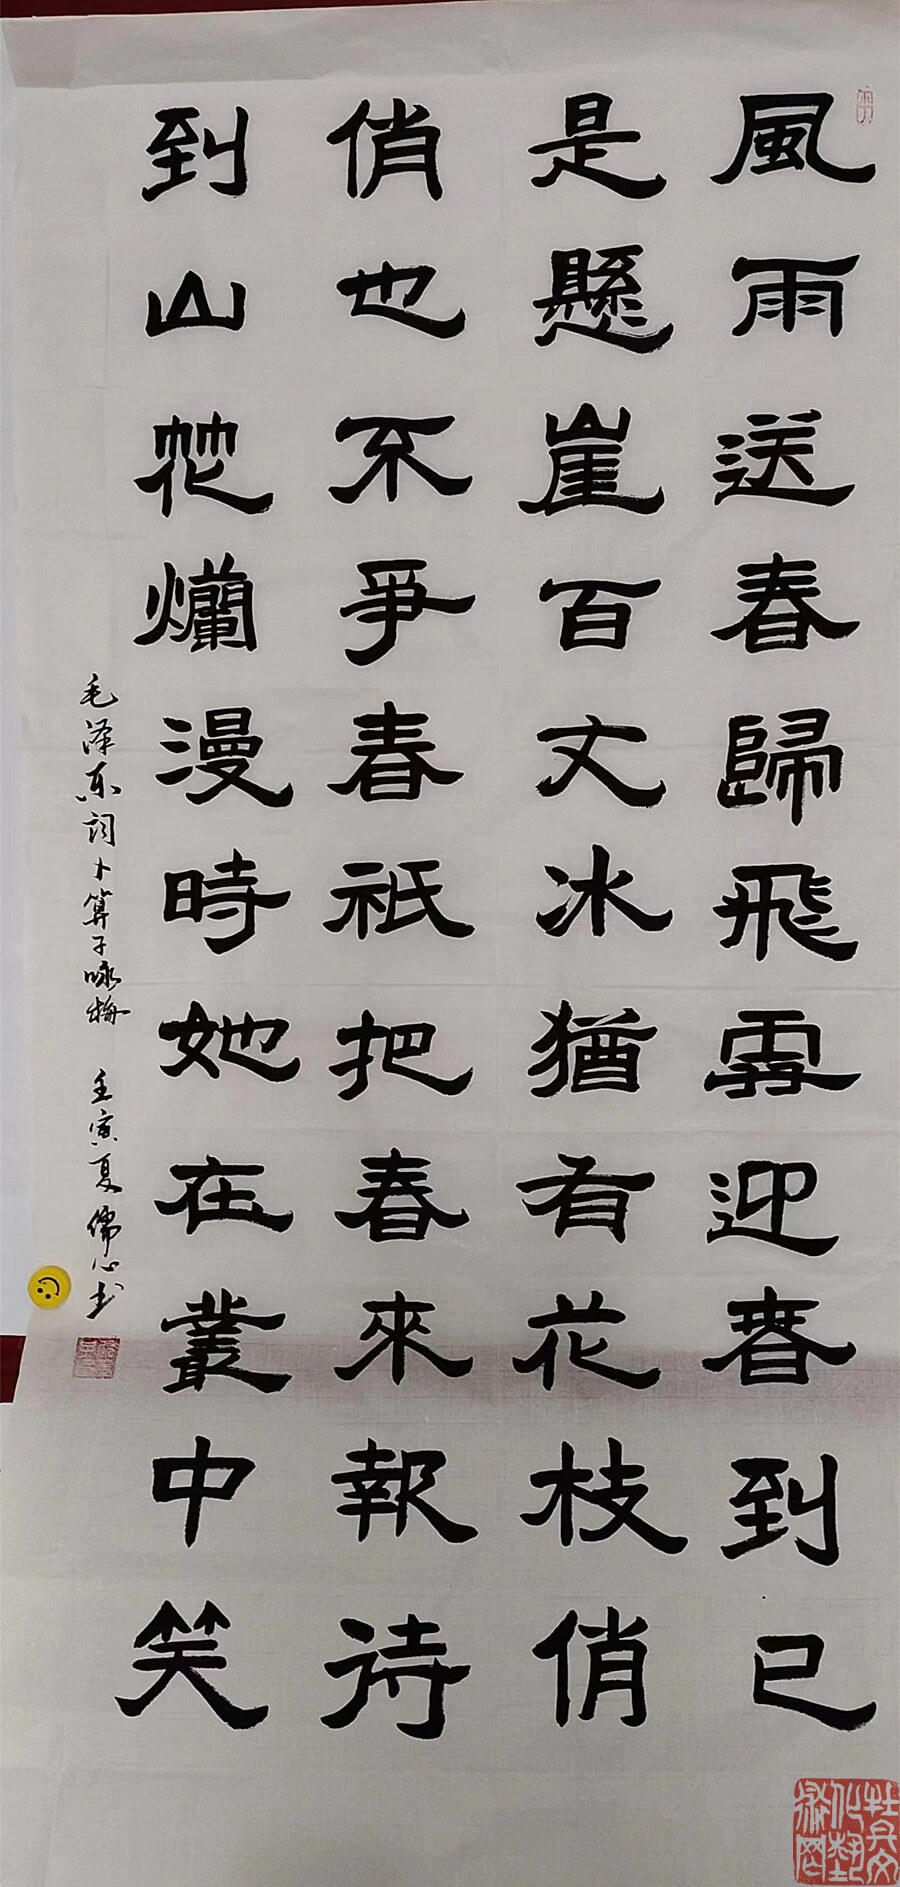 風雨送春歸飛雪迎春到已
是懸崖百丈冰猶有花枝俏
俏也不爭春祇把春來報待
到山花爛漫時她在叢中笑
毛泽东词卜算子咏梅 壬寅夏儒心书